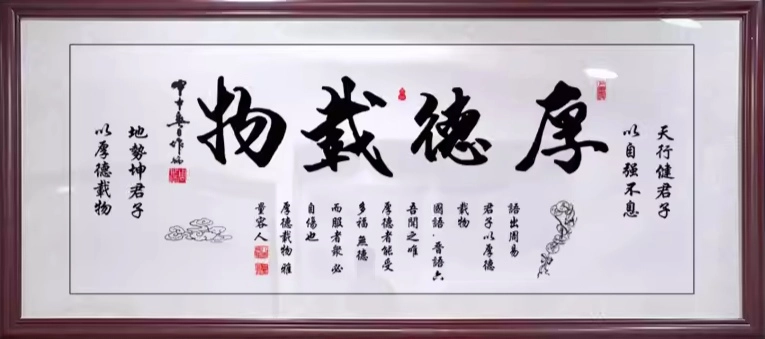 天行健君子
以自强不息
厚德載物
語出周易
君子以厚德
載物
國語·晉語六
吾聞之唯
厚德者能受
多福無德
而服者衆必
自傷也
厚德載物雅
量容人
地勢坤君子
以厚德載物